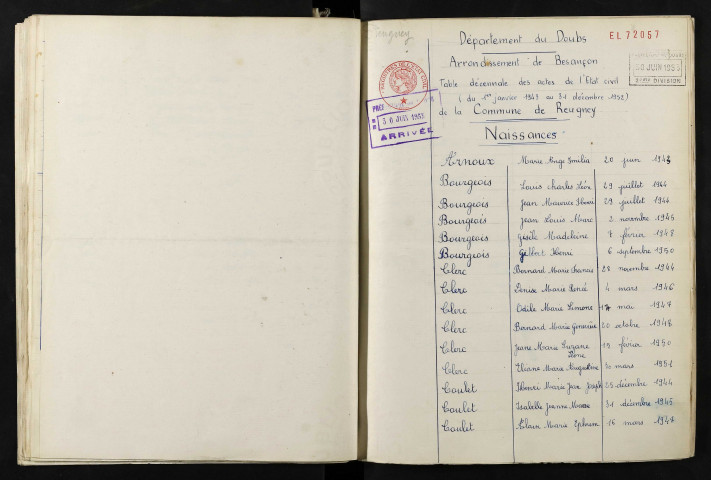 Reugney
Département du Doubs
EL 72057
Arrondissement de Besançon
30 JUIN 1953
3ème DIVISION
Table décennale des actes de l'Etat civil
( du 1er janvier 1943 au 31 décembre 1952 )
30 JUIN 1953
ARRIVÉE
de la Commune de Reugney
Naissances
Arnoux Marie Ange Emilia 20 juin 1943
Bourgeois Louis Charles Léon 29 juillet 1944
Bourgeois Jean Maurice Henri 29 juillet 1944
Bourgeois Jean Louis Marc 2 novembre 1945
Bourgeois Gisèle Madeleine 7 février 1948
Bourgeois Gilbert Henri 6 septembre 1950
Clerc Bernard Marie Francis 28 novembre 1944
Clerc Denise Marie Renée 4 mars 1946
Clerc Odile Marie Simone 17 mai 1947
Clerc Bernard Marie Geneviève 20 octobre 1948
Clerc Jeanne Marie Suzanne 19 février 1950
Léone
Clerc Eliane Marie Augustine 30 mars 1952
Coulet Henri Marie Jean Joseph 25 décembre 1944
Coulet Isabelle Jeanne Marie 31 décembre 1945
Coulet Alain Marie Ephrem 16 mars 1947